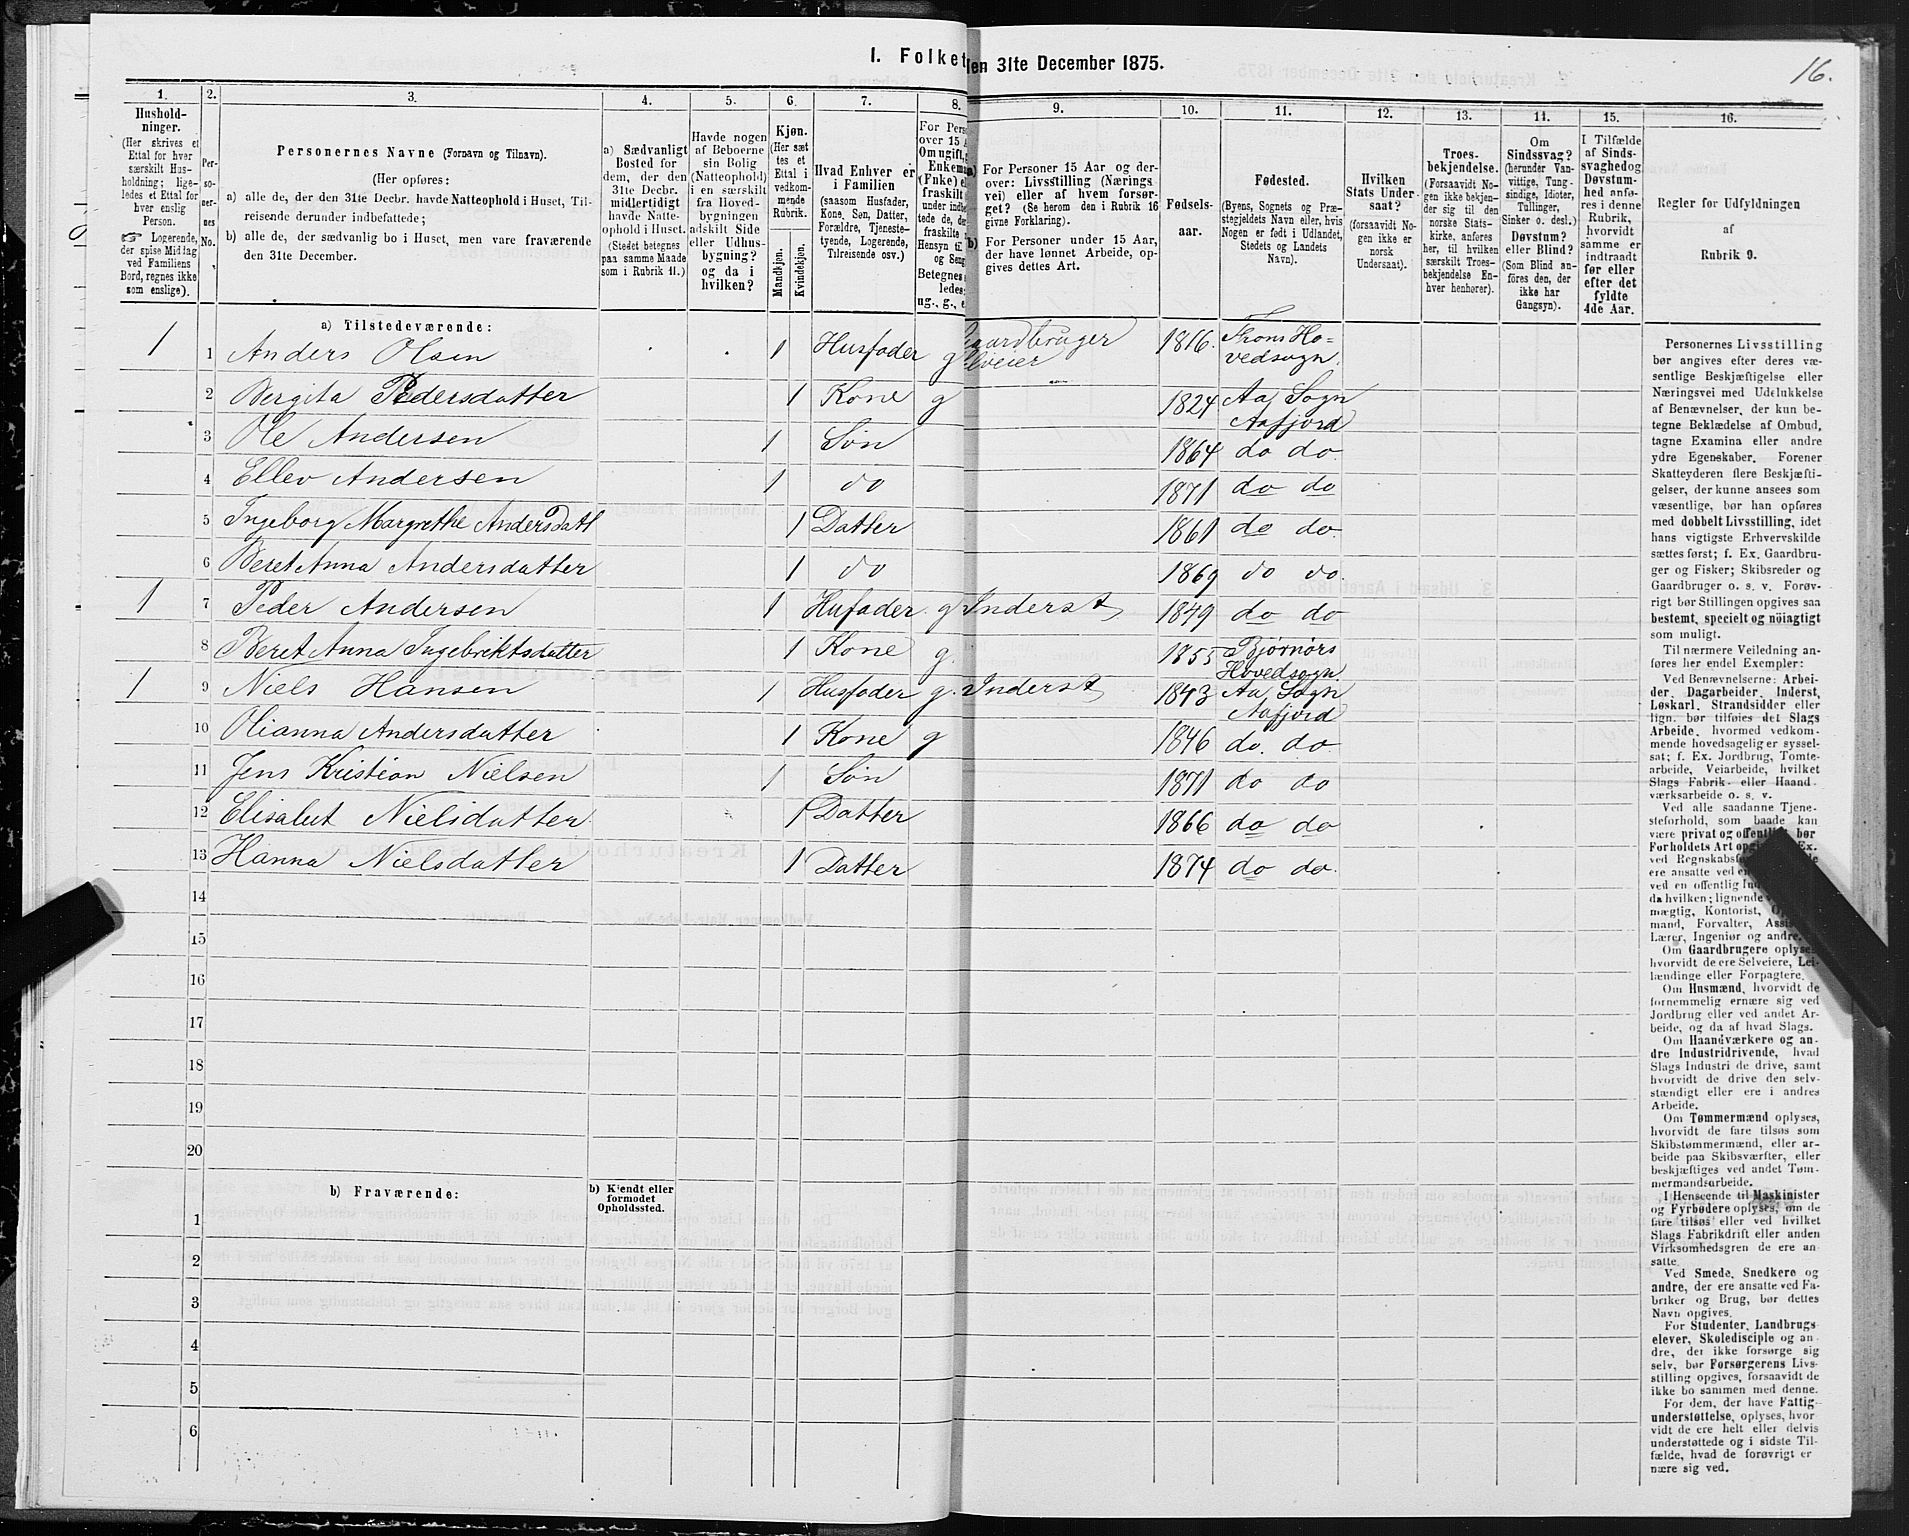 I. Folket
den 31te December 1875.
16.
1. 2. 3. 4. 5. 6. 7. 8. 9. 10. 11. 12. 13. 14. 15. 16.
Hushold-
ninger.
(Her skrives et
Ettal for hver
særskilt Hus-
holdning; lige-
ledes et Ettal for
hver enslig
Person.
☞ Logerende,
der spise Middag
ved Familiens
Bord, regnes ikke
som enslige).
Per-
so-
ner-
nes
No.
Personernes Navne (Fornavn og Tilnavn).
(Her opføres:
a) alle de, der den 31te Decbr. havde Natteophold i Huset, Til-
reisende derunder indbefattede;
b) alle de, der sædvanlig bo i Huset, men vare fraværende
den 31te December.
a) Sædvanligt
Bosted for
dem, der den
31te Decbr.
midlertidigt
havde Natte-
ophold i Huset.
(Stedet betegnes
paa samme Maade
som i Rubrik 11.)
Havde nogen
af Beboerne
sin Bolig
(Natteophold)
i en særskilt
fra Hoved-
bygningen
adskilt Side
eller Udhus-
bygning?
og da i
hvilken?
Kjøn.
(Her sæt
tes et
Ettal i
vedkom-
mende
Rubrik.
Mandkjøn.
Kvindekjøn.
Hvad Enhver er
i Familien
(saasom Husfader,
Kone, Søn, Datter,
Forældre, Tjeneste-
tyende, Logerende,
Tilreisende osv.)
For Pers
over 15 A
Om ugift,
Enkem
(Fnke) el
fraskilt
under indb
tede de, de
fraskilte
Hensyn til
og Seng
Betegnes
ledes:
ug., g., e
a) For Personer 15 Aar og der-
over: Livsstilling (Nærings
vei) eller af hvem forsør-
get? (Se herom den i Rubrik 16
givne Forklaring).
b) For Personer under 15 Aar,
der have lønnet Arbeide, op-
gives dettes Art.
Fødsels-
aar.
Fødested.
(Byens, Sognets og Præ-
stegjeldets Navn eller, hvis
Nogen er født i Udlandet,
Stedets og Landets
Navn).
Hvilken
Stats Under-
saat?
(forsaavidt No-
gen ikke er
norsk
Undersaat).
Troes-
bekjendelse.
(Forsaavidt No-
gen ikke bekjen-
der sig til den
norske Stats-
kirke, anføres
her, til hvilken
særskilt Troes-
bekjendelse En-
hver henhører).
Om
Sindssvag?
(herunder Van-
vittige, Tung-
sindige, Idioter,
Tullinger,
Sinker o. desl.)
Døvstum?
eller Blind?
(Som Blind an-
føres den, der
ikke har
Gangsyn).
I Tilfælde
af Sinds-
svaghed og
Døvstum-
hed anfø-
res i denne
Rubrik,
hvorvidt
samme er
indtraadt
før eller
efter det
fyldte
4de Aar.
Regler for Udfyldningen
af
Rubrik 9.
a) Tilstedeværende:
1 1 Anders Olsen 1 Husfader g Gaardbruger Selveier 1816. Frons Ho= vedsogn
2 Bergita Pedersdatter 1 Kone g 1824 Aa Sogn Aafjord
3 Ole Andersen 1 Søn 1864 do do
4 Ellev Andersen 1 do 1871 do do
5 Ingeborg Margrethe AndersDatt 1 Datter 1861 do do.
6 Beret Anna Andersdatter 1 do 1869 do do.
1 7 Peder Andersen 1 Hufader. g. Inderst 1849 do do
8 Beret Anna Ingebriktsdatter 1 Kone g. 1855 Bjørnørs Hovedsogn
1 9 Niels Hansen 1 Husfader g. Inderst 1843 Aa Sogn Aafjord
10 Olianna Andersdatter 1 Kone g 1846 do. do
11 Jens Kristian Nielsen 1 Søn 1871 do do
12 Elisabet Nielsdatter. 1 Datter 1866 do do
13 Hanna Nielsdatter 1 Datter 1874 do do.
14
15
16
17
18
19
20
b) Fraværende:
b) Kjendt eller
formodet
Opholdssted.
1
2
3
4
5
6
Personernes Livsstilling
bør angives efter deres væ-
sentlige Beskjæftigelse eller
Næringsvei med Udelukkelse
af Benævnelser, der kun be-
tegne Beklædelse af Ombud,
tagne Examina eller andre
ydre Egenskaber. Forener
Skatteyderen flere Beskjæfti-
gelser, der kunne ansees som
væsentlige, bør han opføres
med dobbelt Livsstilling, idet
hans vigtigste Erhvervskilde
sættes først; f. Ex. Gaardbru-
ger og Fisker; Skibsreder og
Gaardbruger o. s. v. Forøv-
rigt bør Stillingen opgives saa
bestemt, specielt og nøiagtigt
som muligt.
Til nærmere Veiledning an-
føres her endel Exempler:
Ved Benævnelserne: Arbei-
der, Dagarbeider, Inderst,
Løskarl, Strandsidder eller
lign. bør tilføies det Slags
Arbeide, hvormed vedkom-
mende hovedsagelig er syssel-
sat; f. Ex. Jordbrug, Tomte-
arbeide, Veiarbeide, hvilket
Slags Fabrik- eller Haand
værksarbeide o. s. v.
Ved alle saadanne Tjene-
steforhold, som baade kan
være privat og offentlig, bør
Forholdets Art opgi Ex.
ved Regnskabsfø de
ere ansatte ved en
ved en offentlig In
da hvilken; lignende
mægtig, Kontorist, O
mand, Forvalter, Assis
Lærer, Ingeniør og andre.
Om Gaardbrugere oplyses,
hvorvidt de ere Selveiere, Lei-
lændinge eller Forpagtere.
Om Husmænd, hvorvidt de
fornemmelig ernære sig ved
Jordbrug eller ved andet Ar-
beide, og da af hvad Slags.
Om Haandværkere og an-
dre Industridrivende, hvad
Slags Industri de drive, samt
hvorvidt de drive den selv-
stændigt eller ere i andres
Arbeide.
Om Tømmermænd oplyses,
hvorvidt de fare tilsøs som
Skibstømmermænd, eller ar-
beide paa Skibsværfter, eller
beskjæftiges ved andet Tøm-
mermandsarbeide.
I Henseende til Maskinister
og Fyrbødere oplyses, om de
fare tilsøs eller ved hvilket
Slags Fabrikdrift eller anden
Virksomhedsgren de ere an-
satte.
Ved Smede, Snedkere og
andre, der ere ansatte ved Fa-
briker og Brug, bør dettes
Navn opgives.
For Studenter, Landbrugs-
elever, Skoledisciple og an-
dre, der ikke forsørge sig
selv, bør Forsørgerens Livs-
stilling opgives, forsaavidt de
ikke bo sammen med denne.
For dem, der have Fattig-
understøttelse, oplyses, hvor-
vidt de ere helt eller delvis
understøttede og i sidste Til-
fælde, hvad de forøvrigt er
nære sig ved.